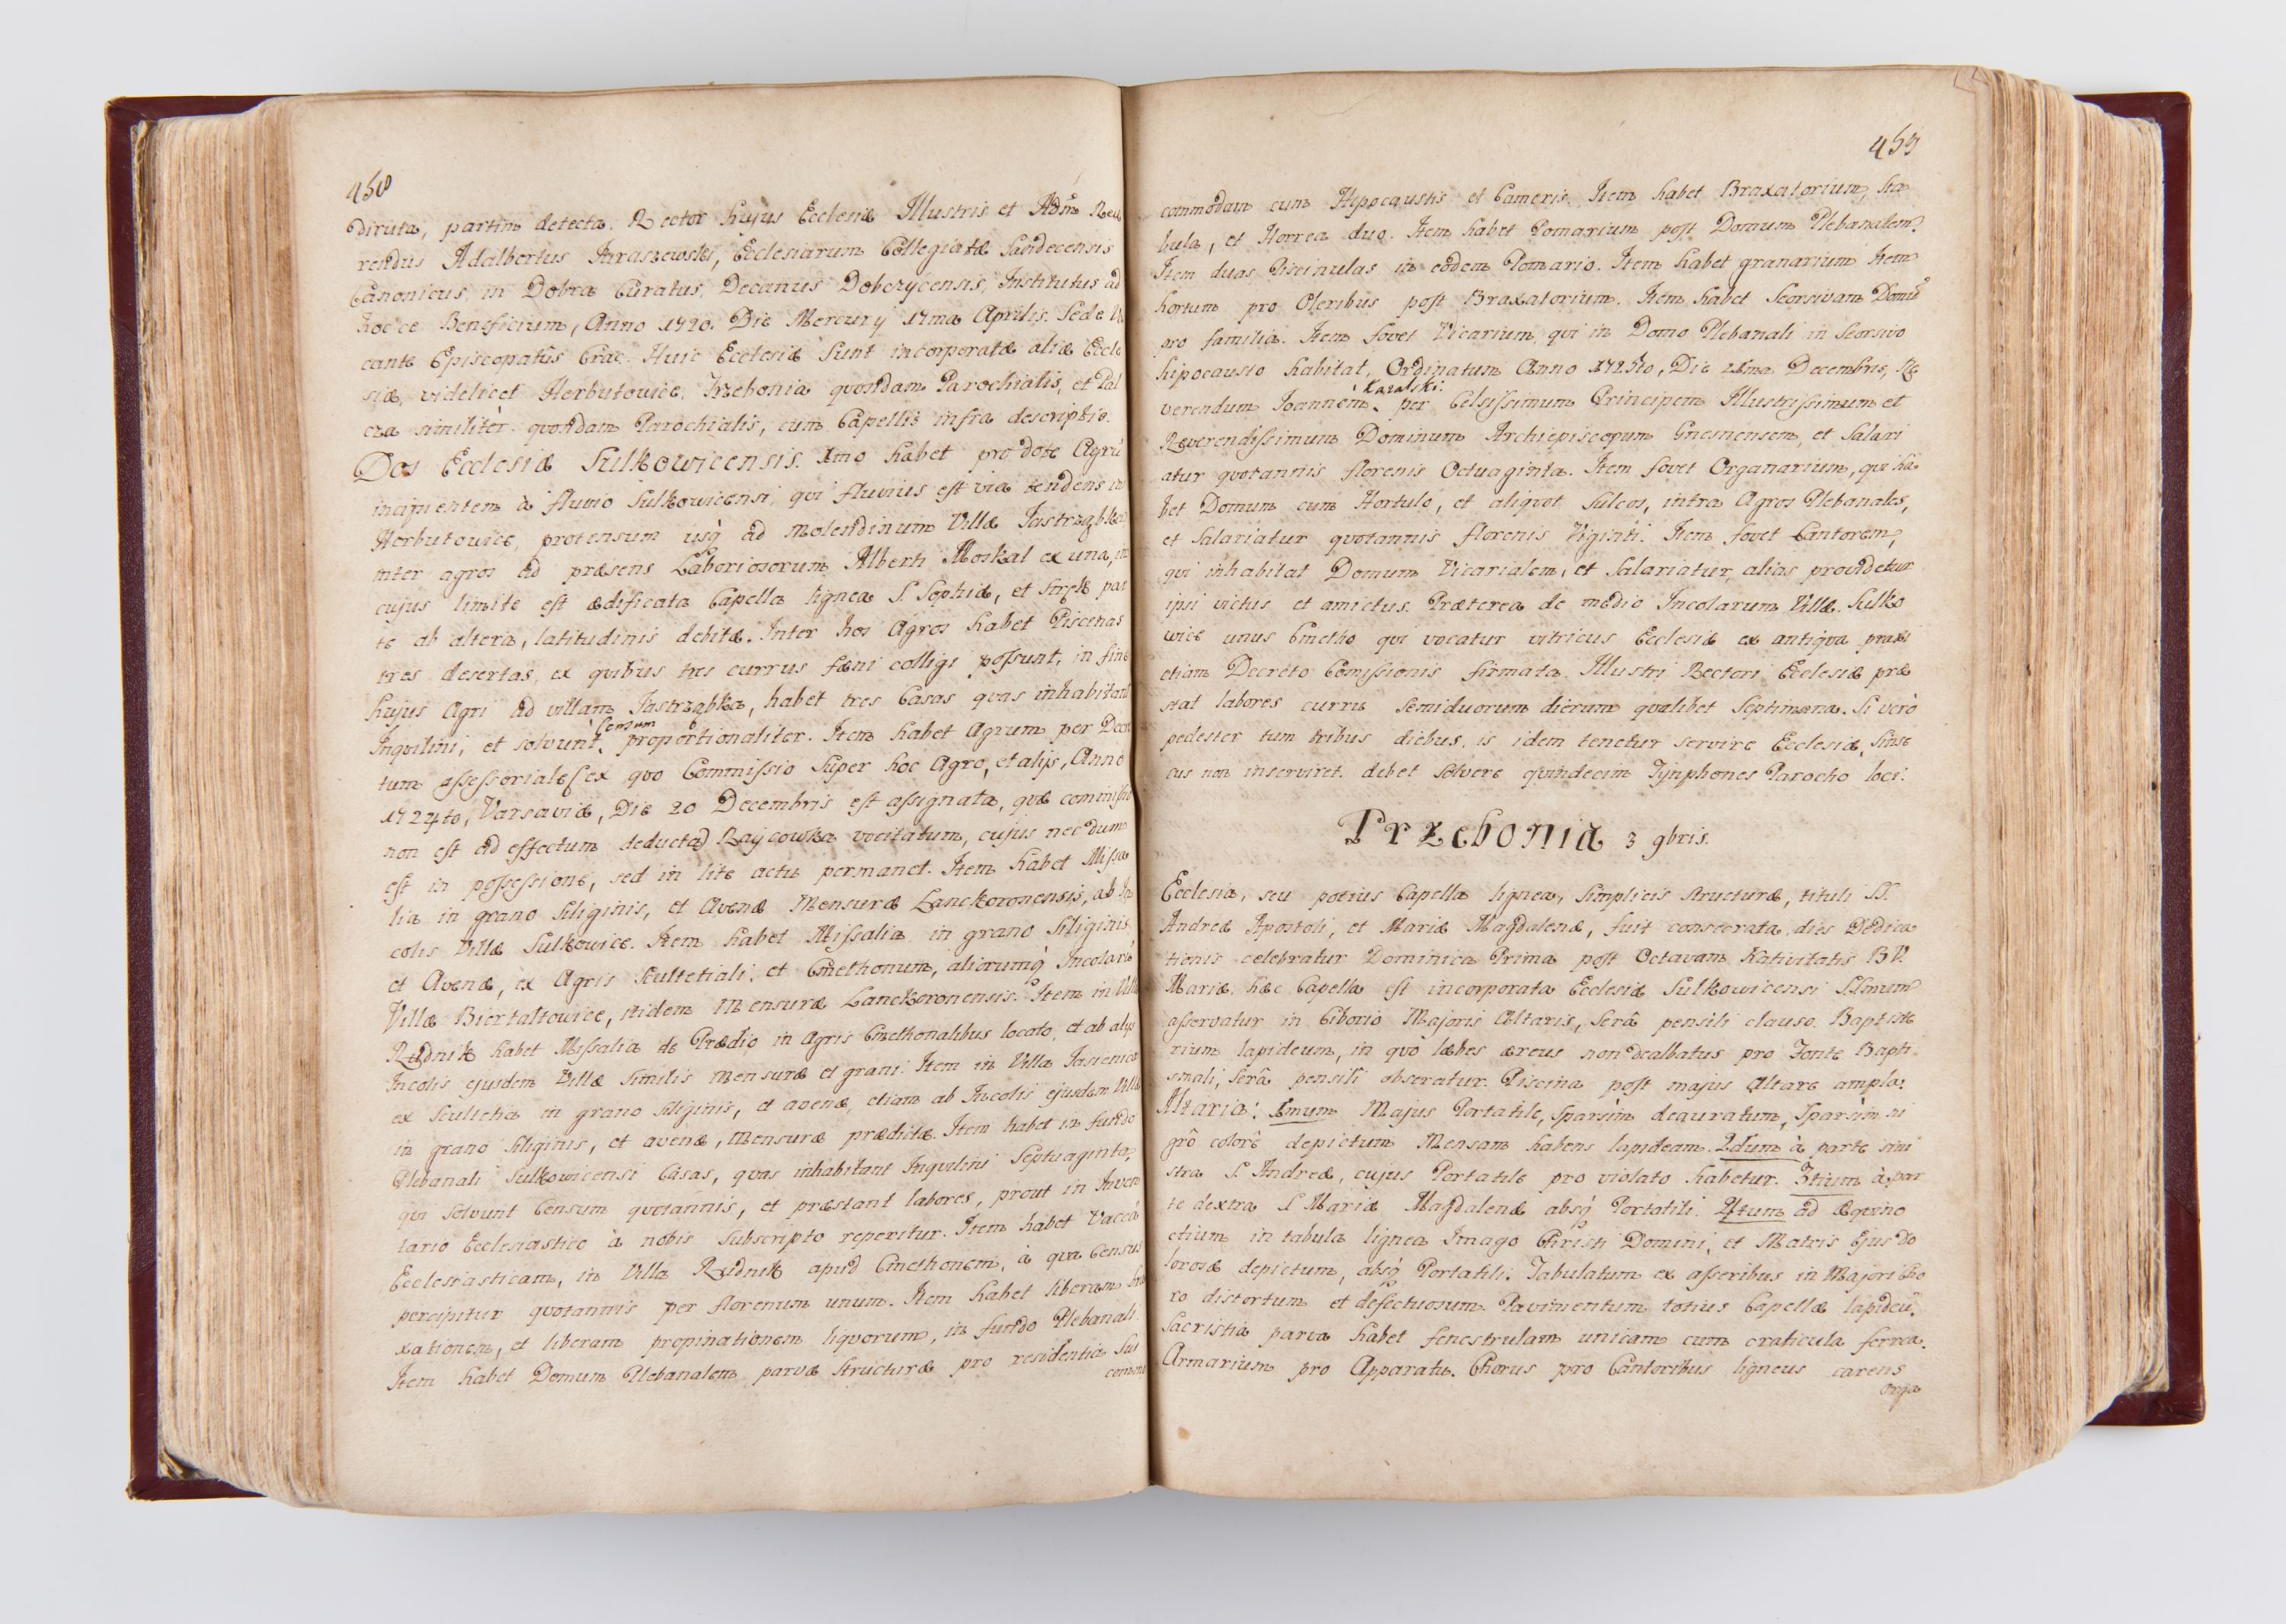 458
diruta, partim detecta. Rector hujus Ecclesiæ Illustris et Adm Reve
rendus Adalbertus Araszewski, Ecclesiarum Collegiatæ Sandecensis
Canonicus, in Dobra Curatus, Decanus Dobczycensis, Institutus ad
hocce Beneficium, Anno 1720. Die Mercurij 17ma Aprilis. Sede Va
cante Episcopatûs Crac. Huic Ecclesiæ sunt incorporatæ aliæ Eccle
siæ, videlicet Herbutowice, Trzebonia quondam Parochialis, et Pal
cza similitèr quondam Parochialis, cum Capellis infra descriptis.
Dos Ecclesiæ Sulkowicensis. 1mo habet pro dote Agrũ
incipientem à fluvio Sulkowicensi, qui fluvius est via tendens in
Herbutowice, protensum usq ad Molendinum Villæ Jastrząbka
inter agros ad præsens Laboriosorum Alberti Moskal ex una, in
cujus limite est ædificata Capella lignea S. Sophiæ, et Stręk par
te ab altera, latitudinis debitæ. Inter hos Agros habet Piscinas
tres desertas, ex quibus tres currus fæni colligi possunt, in fine
hujus Agri ad villam Jastrząbka, habet tres Casas quas inhabitant
Inquilini, et solvunt Censum proportionaliter. Item habet Agrum per Decre
tum assessoriale ex quo Commissio super hoc Agro, et alijs, Anno
1724to, Varsaviæ, Die 20 Decembris est assignata, quæ commissio
non est ad effectum deducta Raycowka vocitatum, cujus nec dum
est in possessione, sed in lite actu permanet. Item habet Missa
lia in grano Siliginis, et Avenæ Mensuræ Lanckoronensis, ab In
colis Villæ Sulkowice. Item habet Missalia in grano Siliginis
et Avenæ, ex Agris Scultetiali, et Cmethonum, aliorumq Incolarũ
Villæ Biertaltowice, itidem Mensuræ Lanckoronensis. Item in Villa
Rudnik habet Missalia de Prædio, in Agris Cmethonalibus locato, et ab alijs
Incolis ejusdem Villæ similis Mensuræ et grani. Item in Villa Jasienica
ex Scultetia in grano siliginis, et avenæ, etiam ab Incolis ejusdem Villæ
in grano siliginis, et avenæ, Mensuræ prædictæ. Item habet in fundo
Plebanali Sulkowicensi Casas, quas inhabitant Inquilini Septuaginta,
qui solvunt Censum quotannis, et præstant labores, prout in Inven
tario Ecclesiastico à nobis subscripto reperitur. Item habet Vaccã
Ecclesiasticam, in Villa Rudnik apud Cmethonem, à qua Census
percipitur quotannis per florenum unum. Item habet liberam bra
xationem, et liberam propinationem liquorum, in fundo Plebanali.
Item habet Domum Plebanalem parvæ structuræ pro residentia sui
commo
459
commodam cum Hypocaustis et Cameris. Item habet Braxatorium, Sta
bula, et Horrea duo. Item habet Pomarium post Domum Plebanalem.
Item duas Piscinulas in eodem Pomario. Item habet granarium Item
hortum pro Oleribus post Braxatorium. Item habet Seorsivam Domũ
pro familia. Item fovet Vicarium, qui in Domo Plebanali in Seorsivo
hipocausto habitat, Ordinatum Anno 1725to, Die 21ma Decembris, Re
verendum Joannem Kazalski: per Celsissimum Principem Illustrissimum et
Reverendissimum Dominum Archiepiscopum Gnesnensem, et salari
atur quotannis florenis Octuaginta. Item fovet Organarium, qui ha
bet Domum cum Hortulo, et aliquot Sulcos, intra Agros Plebanales,
et Salariatur quotannis florenis Viginti. Item fovet Cantorem,
qui inhabitat Domum Vicarialem, et Salariatur, alias providetur
ipsi victus et amictus. Præterea de medio Incolarum Villæ Sulko
wice unus Cmetho qui vocatur vitricus Ecclesiæ ex antiqua praxi
etiam Decréto Comissionis firmata. Illustri Rectori Ecclesiæ præ
stat labores curru semiduorum dierum qualibet Septimana. Si verò
pedester tum tribus diebus, is idem tenetur servire Ecclesiæ, Sinse
cus non inserviret, debet solvere quindecim Tynphones Parocho loci.
Trzebonia 3 9bris.
Ecclesia, seu potius Capella lignea, simplicis structuræ, tituli SS.
Andreæ Apostoli, et Mariæ Magdalenæ, fuit consecrata, dies Dedica
tionis celebratur Dominica Prima post Octavam Nativitatis B.V.
Mariæ, hæc Capella est incorporata Ecclesiæ Sulkowicensi SSmum
asservatur in Ciborio Majoris Altaris, Serâ pensili clauso. Baptiste
rium lapideum, in quò lebes æreus non dealbatus pro Fonte Bapti
smali, Serâ pensili obseratur. Piscina post majus Altare ampla.
Altaria: 1mum Majus Portatile, sparsim deauratum, sparsim ni
grô colorê depictum Mensam habens lapideam. 2dum à parte sini
stra S. Andreæ, cujus Portatile pro violato habetur. 3tium à par
te dextra S. Mariæ Magdalenæ absq Portatili. 4tum ad Æquino
ctium in tabula lignea Imago Christi Domini, et Matris Ejus do
lorosæ depictum, absq Portatili. Tabulatum ex asseribus in Majori Cho
ro distortum et defectuosum. Pavimentum totius Capellæ lapideũ.
Sacristia parva habet fenestrulam unicam cum craticula ferrea.
Armarium pro Apparatu. Chorus pro Cantoribus ligneus carens
Orga